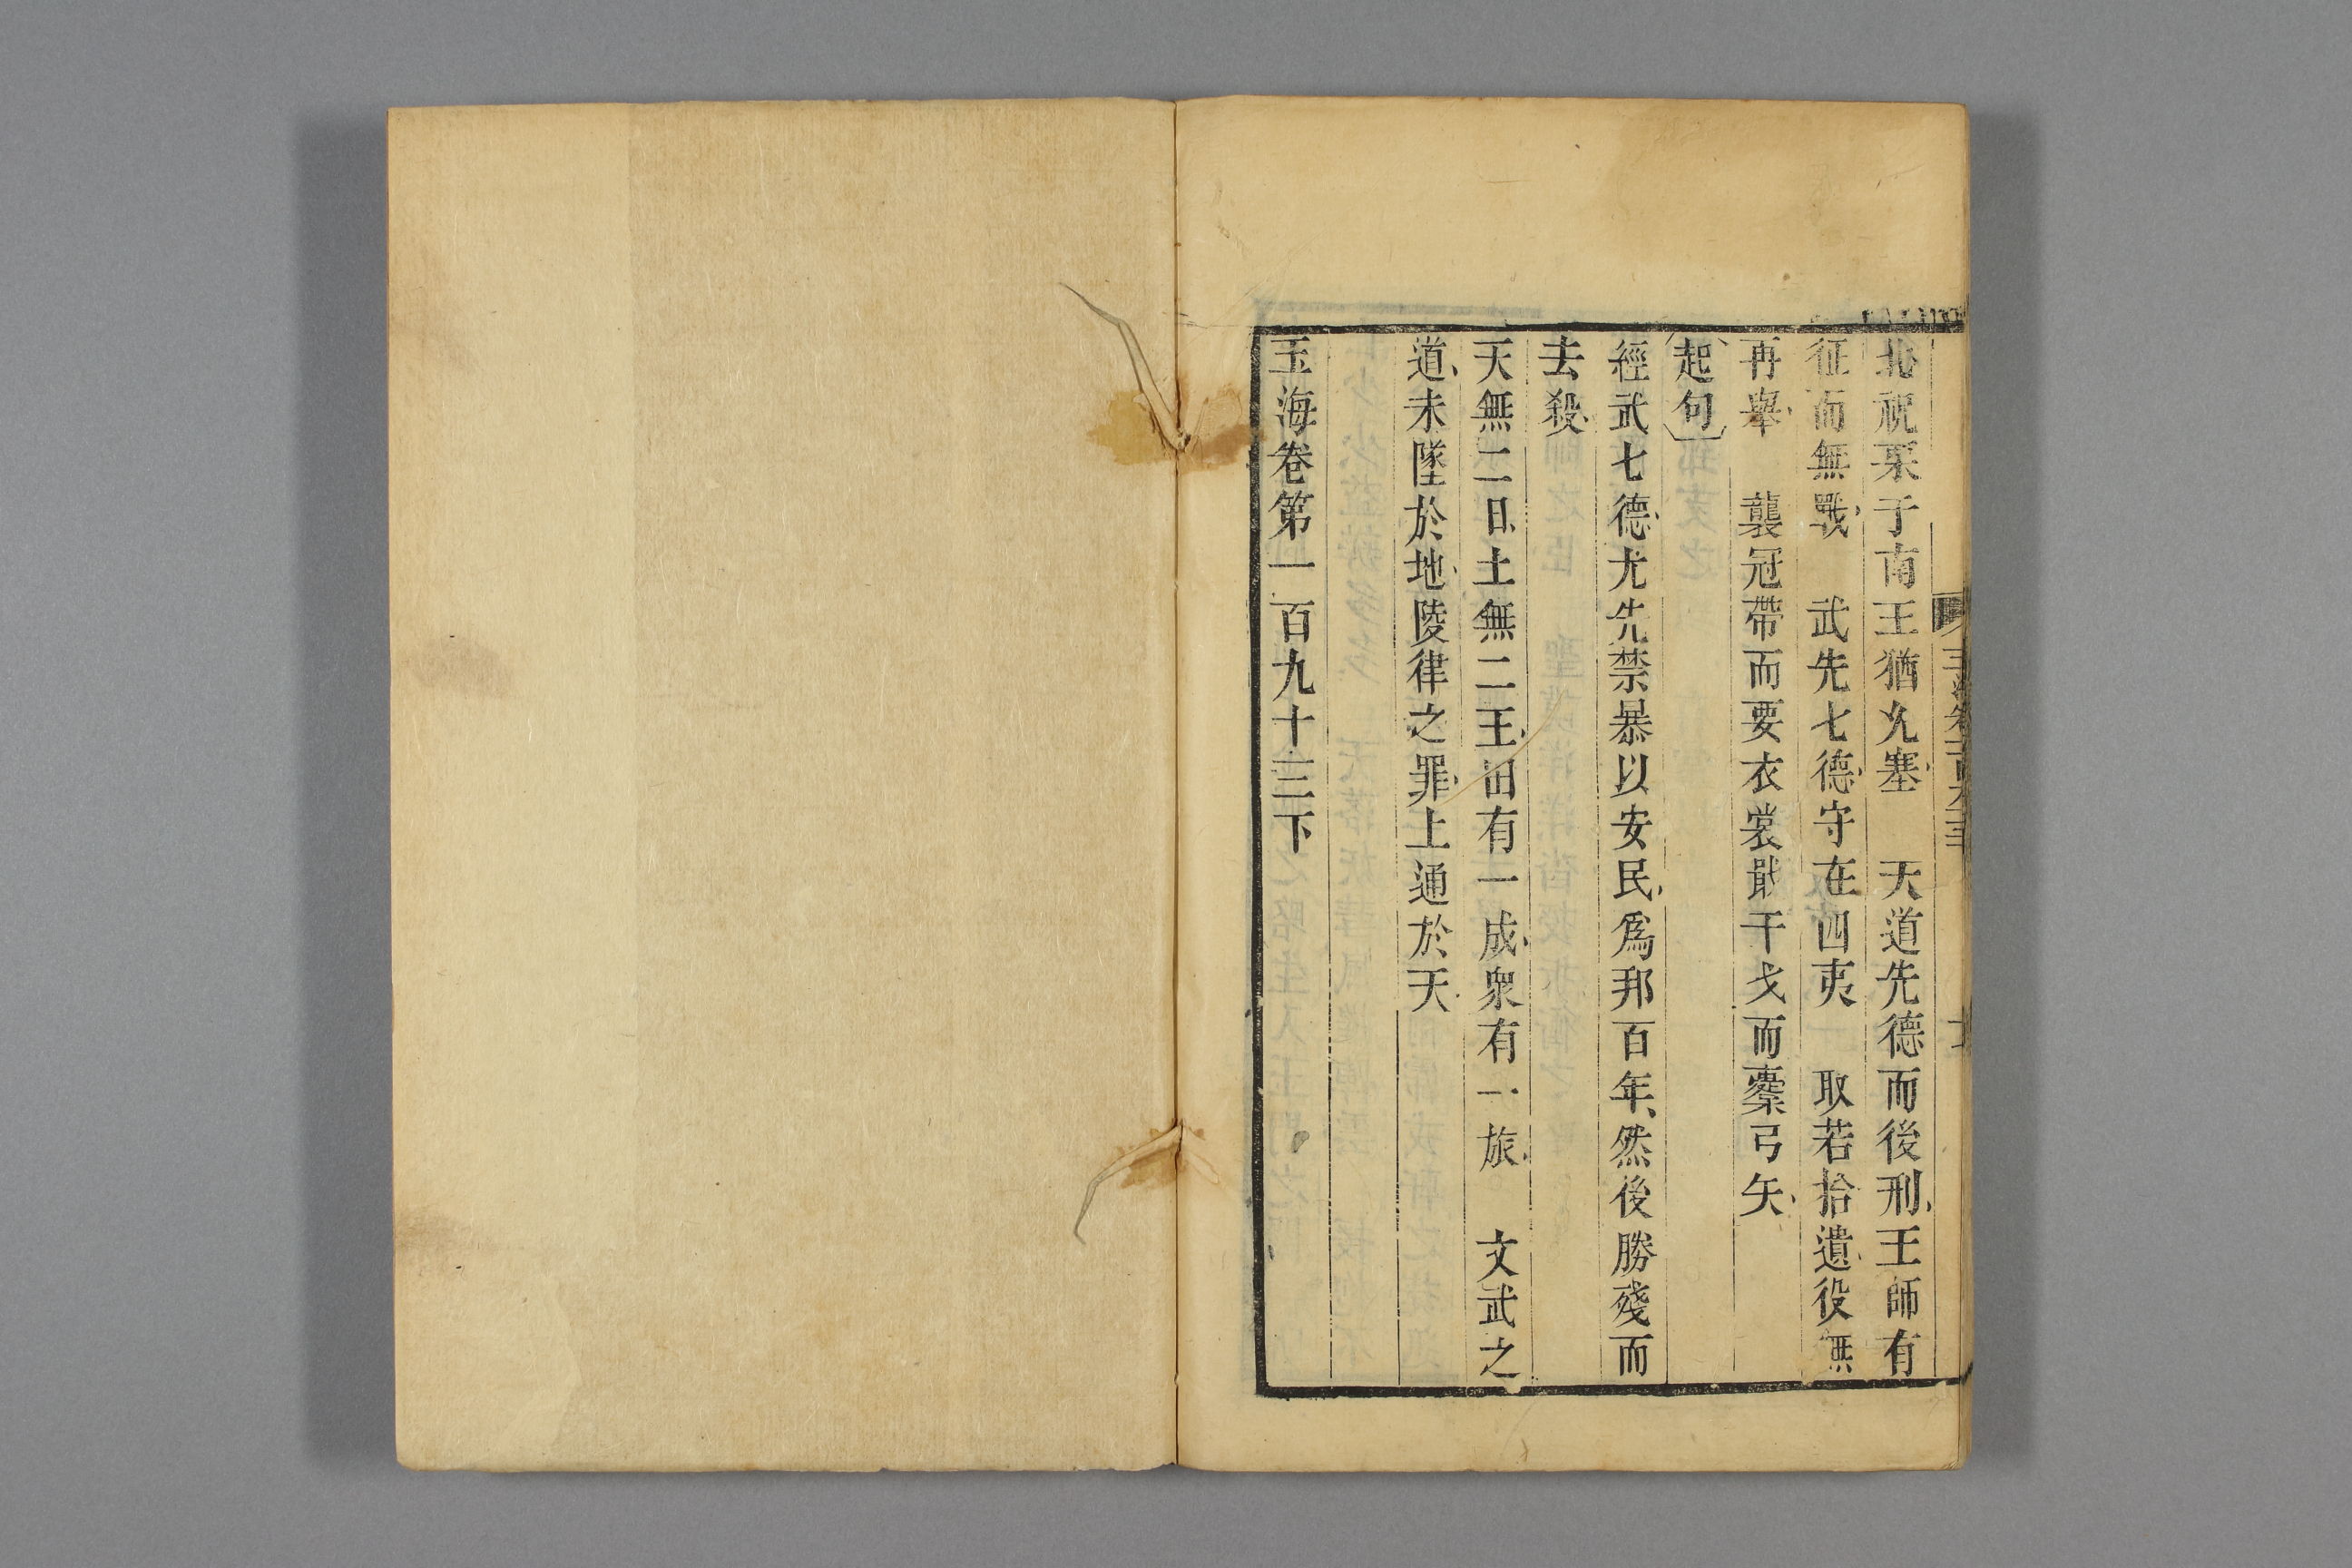 北祝栗于南王猶允塞　天道先德而後刑王師有
征而無戰　武先七德守在四夷　取若拾遺役無
再舉　襲冠帶而要衣裳戢干戈而櫜弓矢
起句
經武七德尤先禁暴以安民爲邦百年然後勝殘而
去殺
天無二日土無二王田有一成衆有一旅　文武之
道未墜於地陵律之罪上通於天
玉海卷第一百九十三下